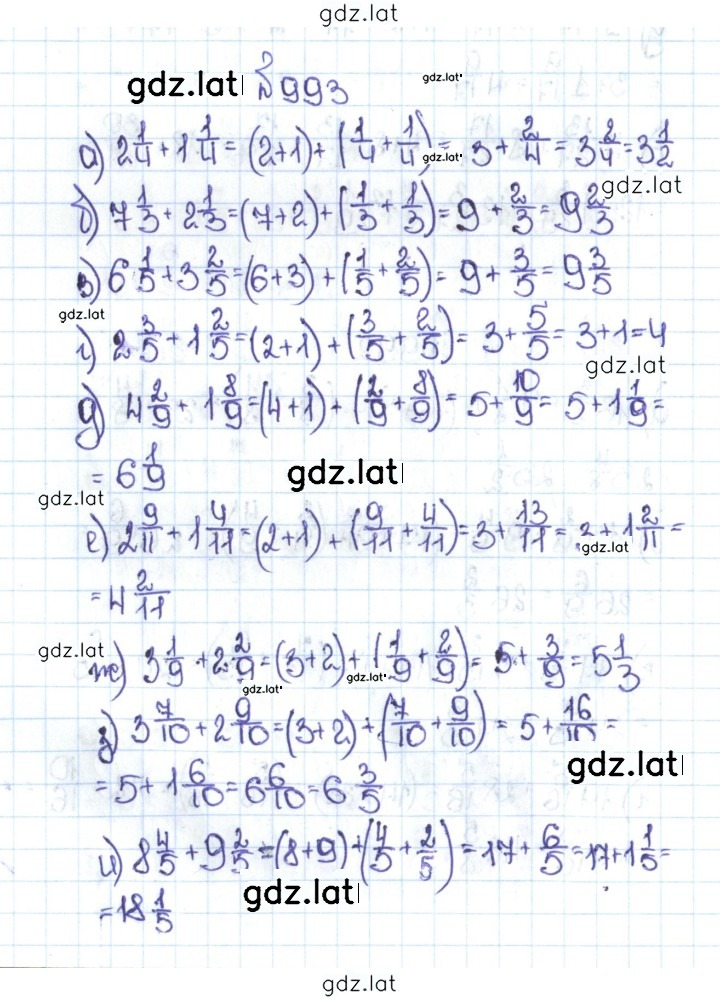 gdz.lat
gdz.lat №993 gdz.lat
а) 2 1/4 + 1 1/4 = (2+1) + (1/4 + 1/4) = 3 + 2/4 = 3 2/4 = 3 1/2
gdz.lat
gdz.lat
б) 7 1/3 + 2 1/3 = (7+2) + (1/3 + 1/3) = 9 + 2/3 = 9 2/3
в) 6 1/5 + 3 2/5 = (6+3) + (1/5 + 2/5) = 9 + 3/5 = 9 3/5
gdz.lat
г) 2 3/5 + 1 2/5 = (2+1) + (3/5 + 2/5) = 3 + 5/5 = 3+1=4
gdz.lat
д) 4 2/9 + 1 8/9 = (4+1) + (2/9 + 8/9) = 5 + 10/9 = 5 + 1 1/9 =
= 6 1/9
gdz.lat
gdz.lat
е) 2 9/11 + 1 4/11 = (2+1) + (9/11 + 4/11) = 3 + 13/11 = 3 + 1 2/11 =
gdz.lat
= 4 2/11
gdz.lat
ж) 3 1/9 + 2 2/9 = (3+2) + (1/9 + 2/9) = 5 + 3/9 = 5 1/3
gdz.lat
gdz.lat
з) 3 7/10 + 2 9/10 = (3+2) + (7/10 + 9/10) = 5 + 16/10 =
gdz.lat
= 5 + 1 6/10 = 6 6/10 = 6 3/5
и) 8 4/5 + 9 2/5 = (8+9) + (4/5 + 2/5) = 17 + 6/5 = 17 + 1 1/5 =
gdz.lat
= 18 1/5
gdz.lat